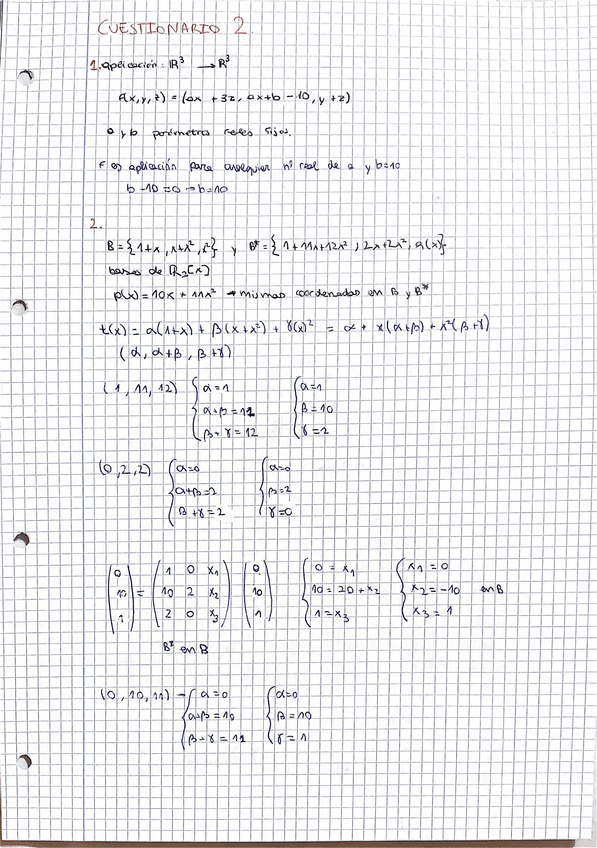 CUESTIONARIO 2.
1. aplicación: ℝ³ → ℝ³
f(x,y,z) = (ax + 3z, ax+b-10, y+z)
a y b parámetros reales fijos.
F es aplicación para cualquier nº real de a y b=10
b-10=0 → b=10
2.
B={1+x, x+x², x²} y B*={1+11x+12x², 2x+2x², q(x)}
bases de ℝ₂[x]
p(x) = 10x + 11x² → mismas coordenadas en B y B*
t(x) = α(1+x) + β(x+x²) + γ(x)² = α + x(α+β) + x²(β+γ)
(α, α+β, β+γ)
(1, 11, 12) { α=1 { α=1
α+β=11 β=10
β+γ=12 γ=2
(0,2,2) { α=0 { α=0
α+β=2 β=2
β+γ=2 γ=0
(0 = (1 0 x₁) (0 { 0 = x₁ { x₁ = 0
10 10 2 x₂ 10 10 = 20 + x₂ x₂ = -10 en B
1) 2 0 x₃ 1) 1 = x₃ x₃ = 1
B* en B
(0, 10, 11) → { α=0 { α=0
α+β=10 β=10
β+γ=11 γ=1